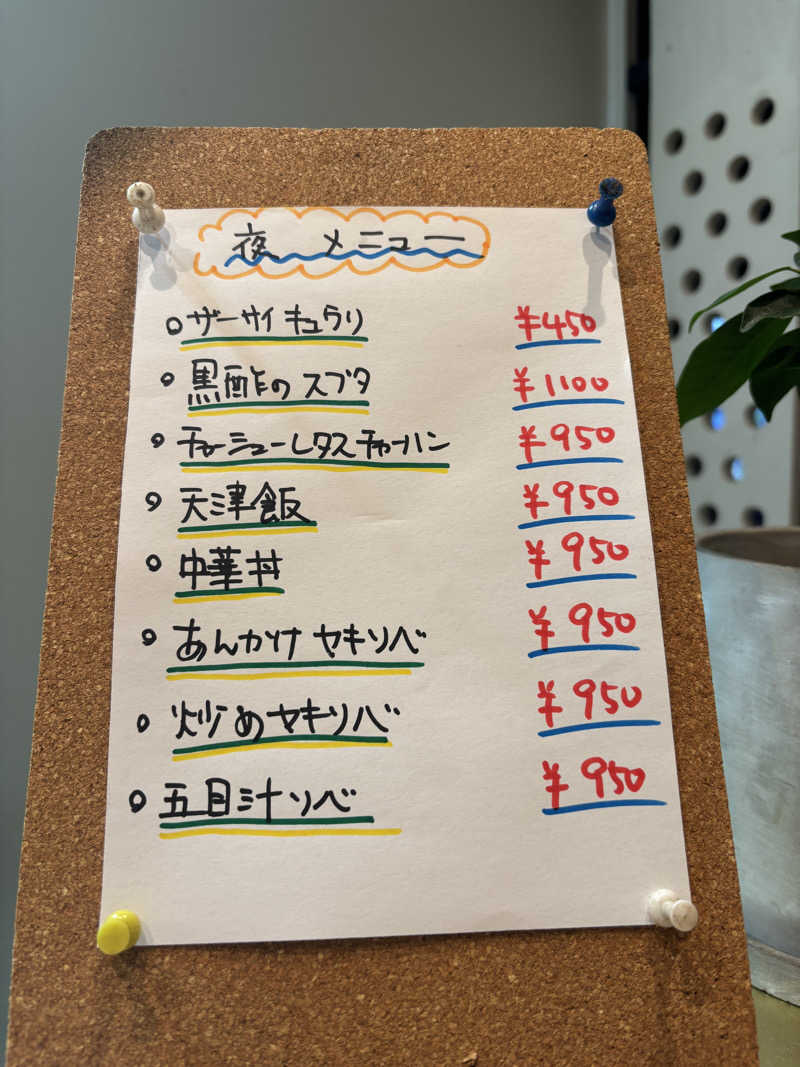 夜 メニュー
○ザーサイ キュウリ ¥450
○黒酢の スブタ ¥1100
○チャーシューレタス チャーハン ¥950
○天津飯 ¥950
○中華丼 ¥950
○あんかけ ヤキソバ ¥950
○炒めヤキソバ ¥950
○五目汁ソバ ¥950